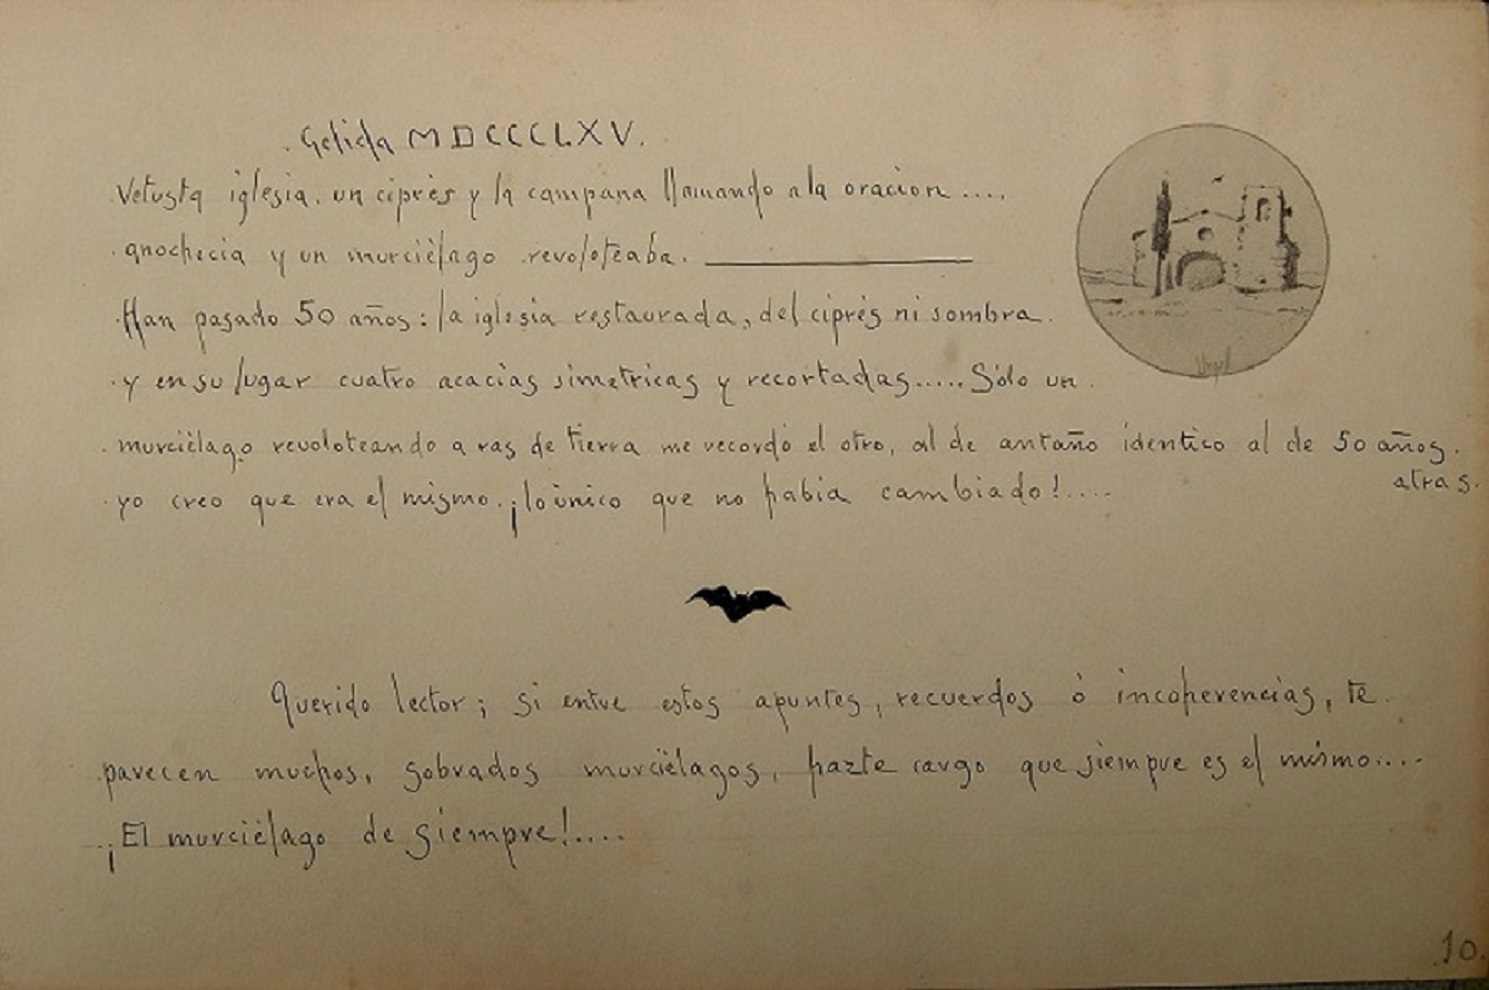 Gelida MDCCCLXV.
Vetusta iglesia, un ciprès y la campana llamando a la oracion....
anochecia y un murcièlago revoloteaba.
Han pasado 50 años: la iglesia restaurada, del ciprés ni sombra.
y en su lugar cuatro acacias simetricas y recortadas..... Sólo un
murcièlago revoloteando a ras de tierra me recordó el otro, al de antaño identico al de 50 años.
atras.
yo creo que era el mismo. ¡lo ùnico que no habia cambiado!....
Querido lector; si entre estos apuntes, recuerdos ò incoherencias, te
parecen muchos, sobrados murcièlagos, hazte cargo que siempre es el mismo....
¡El murcièlago de siempre!....
10.